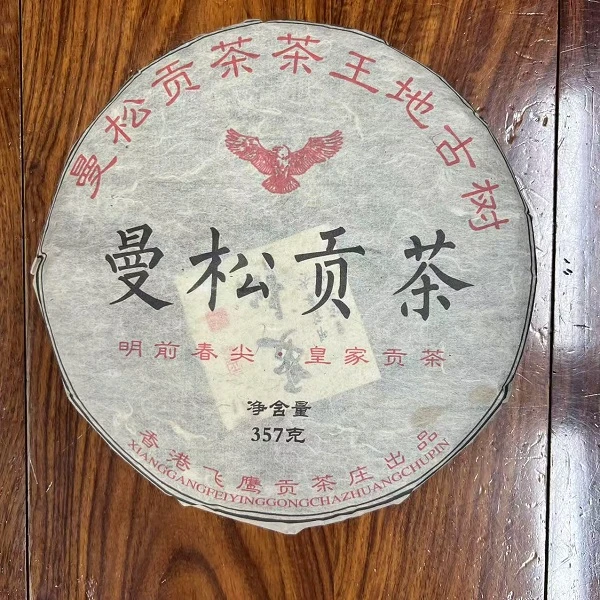 曼松贡茶茶王地古树
曼松贡茶
明前春尖·皇家贡茶
净含量
357克
香港飞鹰贡茶庄出品
XIANGGANGFEIYINGGONGCHAZHUANGCHUPIN